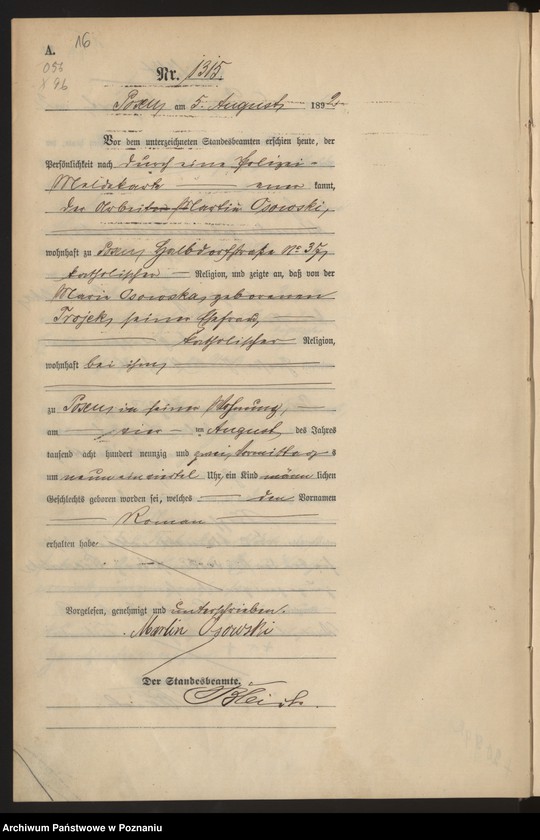 16
A.
Nr. 1315.
Posen am 5. August 1892.
Vor dem unterzeichneten Standesbeamten erschien heute, der
Persönlichkeit nach durch eine Polizei-
Meldekarte kannt,
der Arbeiter Martin Osowski,
wohnhaft zu Posen, Halbdorfstraße No 37,
katholischer Religion, und zeigte an, daß von der
Marie Osowska, geborenen
Trojek, seiner Ehefrau,
katholischer Religion,
wohnhaft bei ihm,
zu Posen in seiner Wohnung,
am ten August des Jahres
tausend acht hundert neunzig und zwei, Vormittags
um neun ein viertel Uhr, ein Kind männlichen
Geschlechts geboren worden sei, welches den Vornamen
Roman
erhalten habe
Vorgelesen, genehmigt und unterschrieben.
Martin Osowski
Der Standesbeamte.
Archiwum Państwowe w Poznaniu